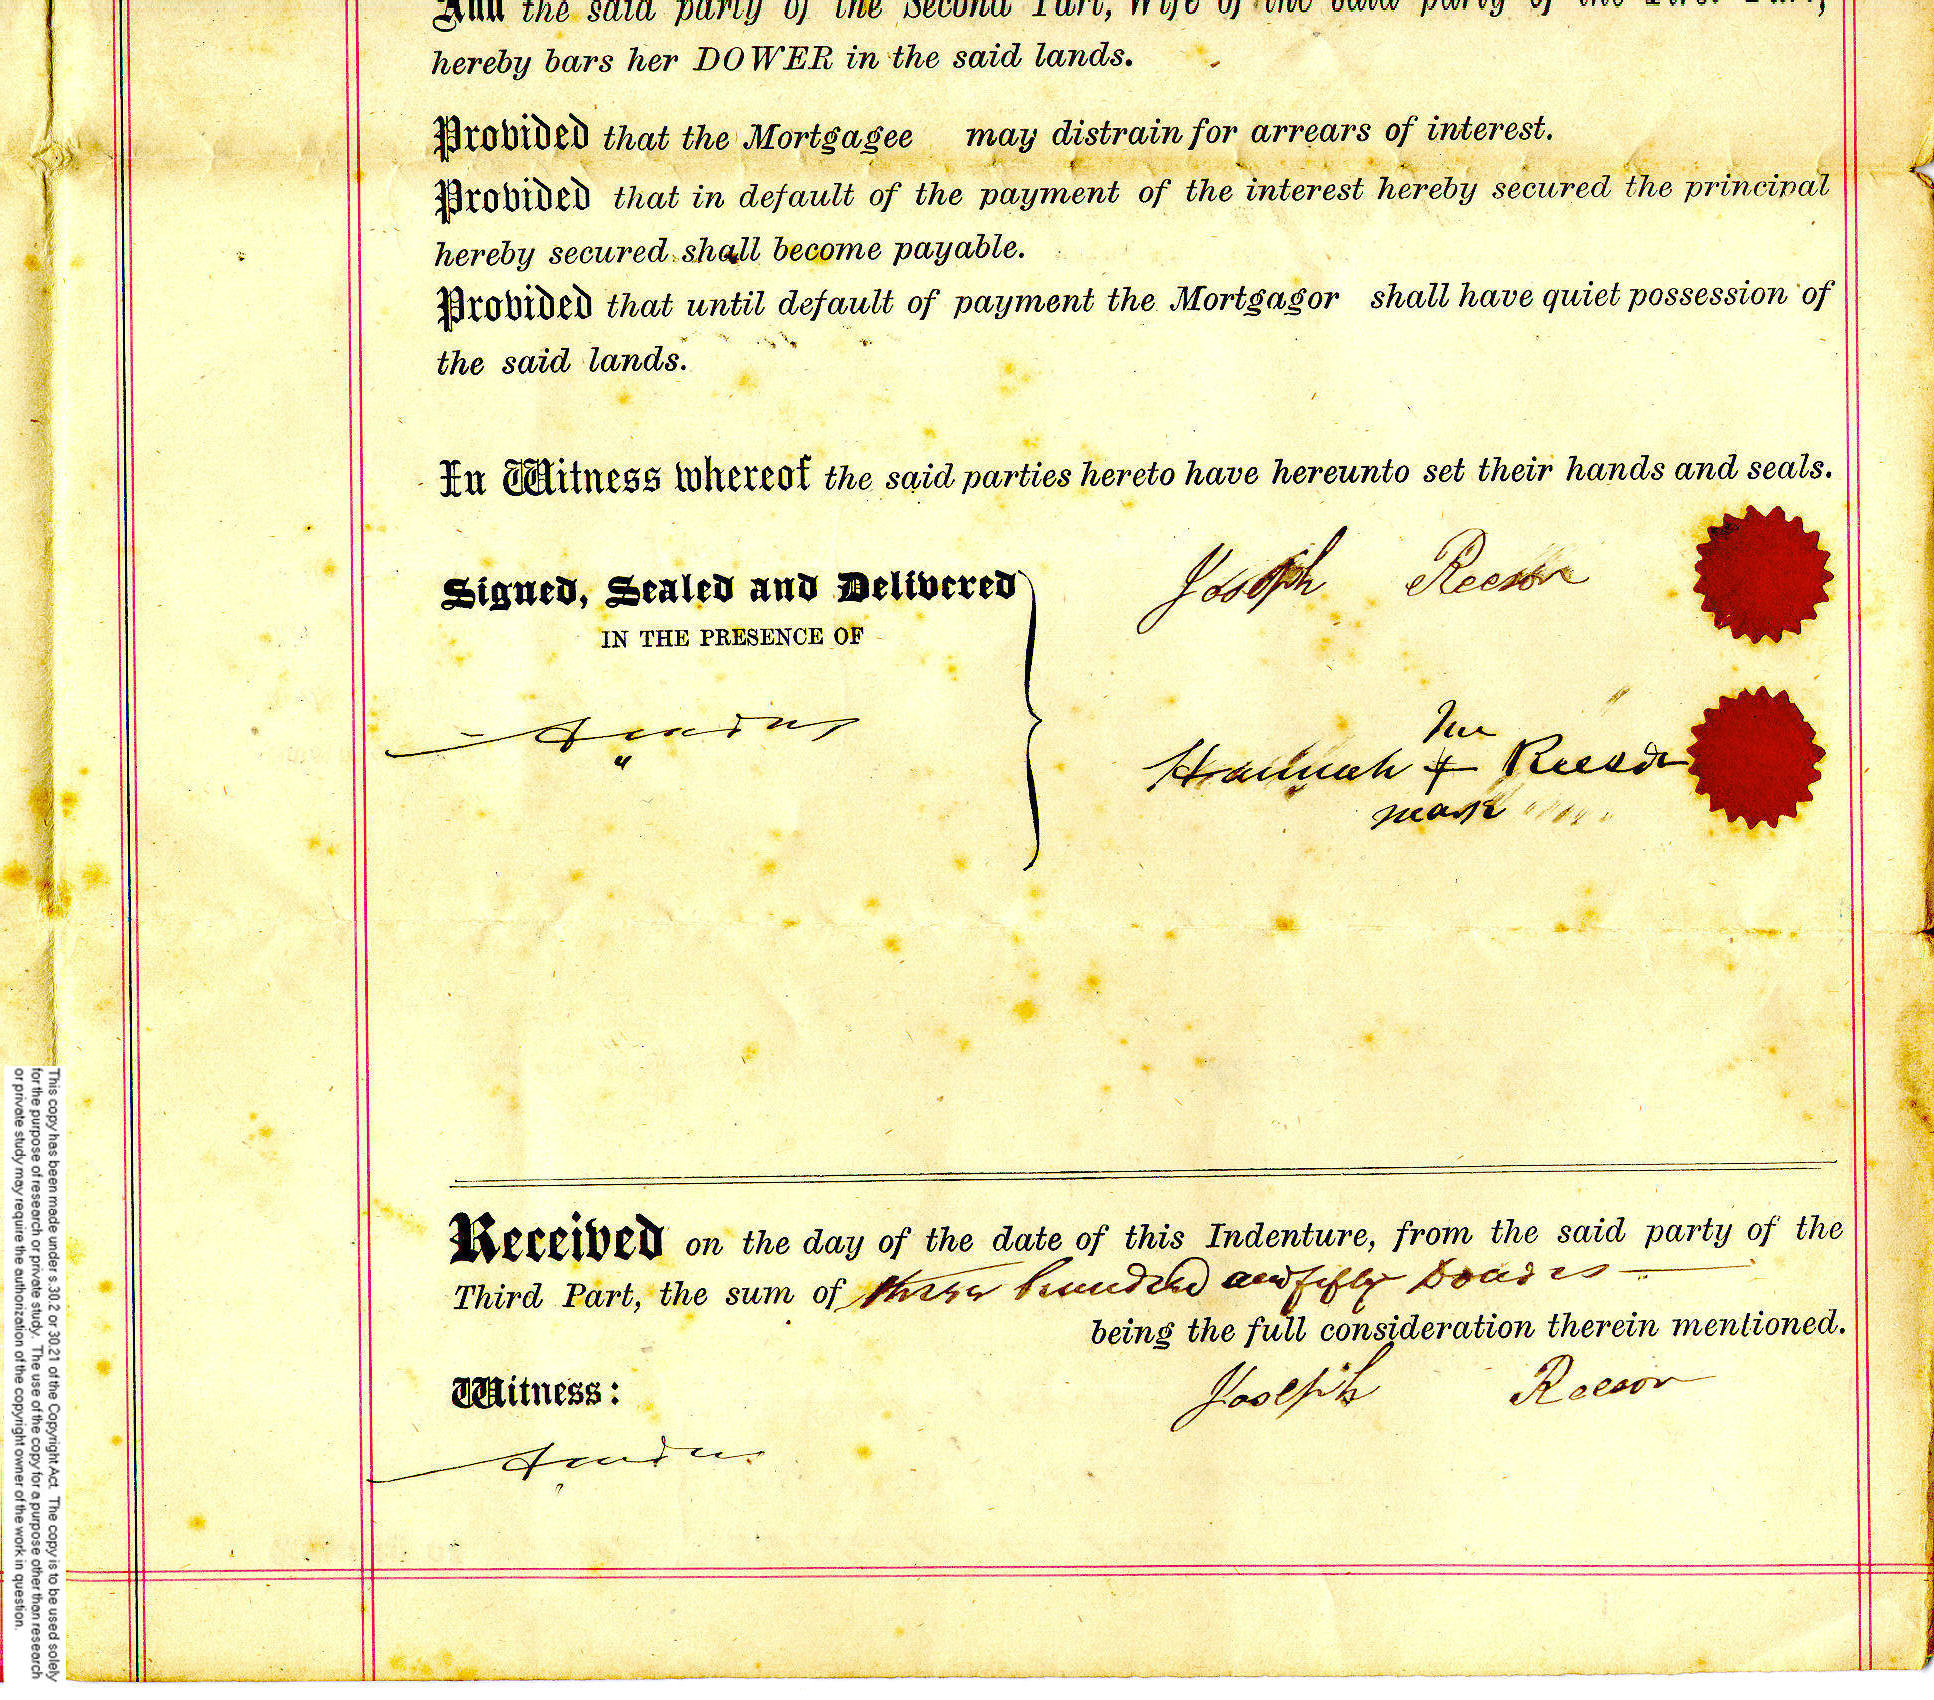 And the said party of the Second Part, Wife of the said party of the First Part,
hereby bars her DOWER in the said lands.
Provided that the Mortgagee may distrain for arrears of interest.
Provided that in default of the payment of the interest hereby secured the principal
hereby secured shall become payable.
Provided that until default of payment the Mortgagor shall have quiet possession of
the said lands.
In Witness whereof the said parties hereto have hereunto set their hands and seals.
Signed, Sealed and Delivered
IN THE PRESENCE OF
Joseph Reesor
her
Hannah + Reesor
mark
Received on the day of the date of this Indenture, from the said party of the
Third Part, the sum of three hundred and fifty Dollars
being the full consideration therein mentioned.
Witness:
Joseph Reesor
This copy has been made under s.30.2 or 30.21 of the Copyright Act. The copy is to be used solely
for the purpose of research or private study. The use of the copy for a purpose other than research
or private study may require the authorization of the copyright owner of the work in question.